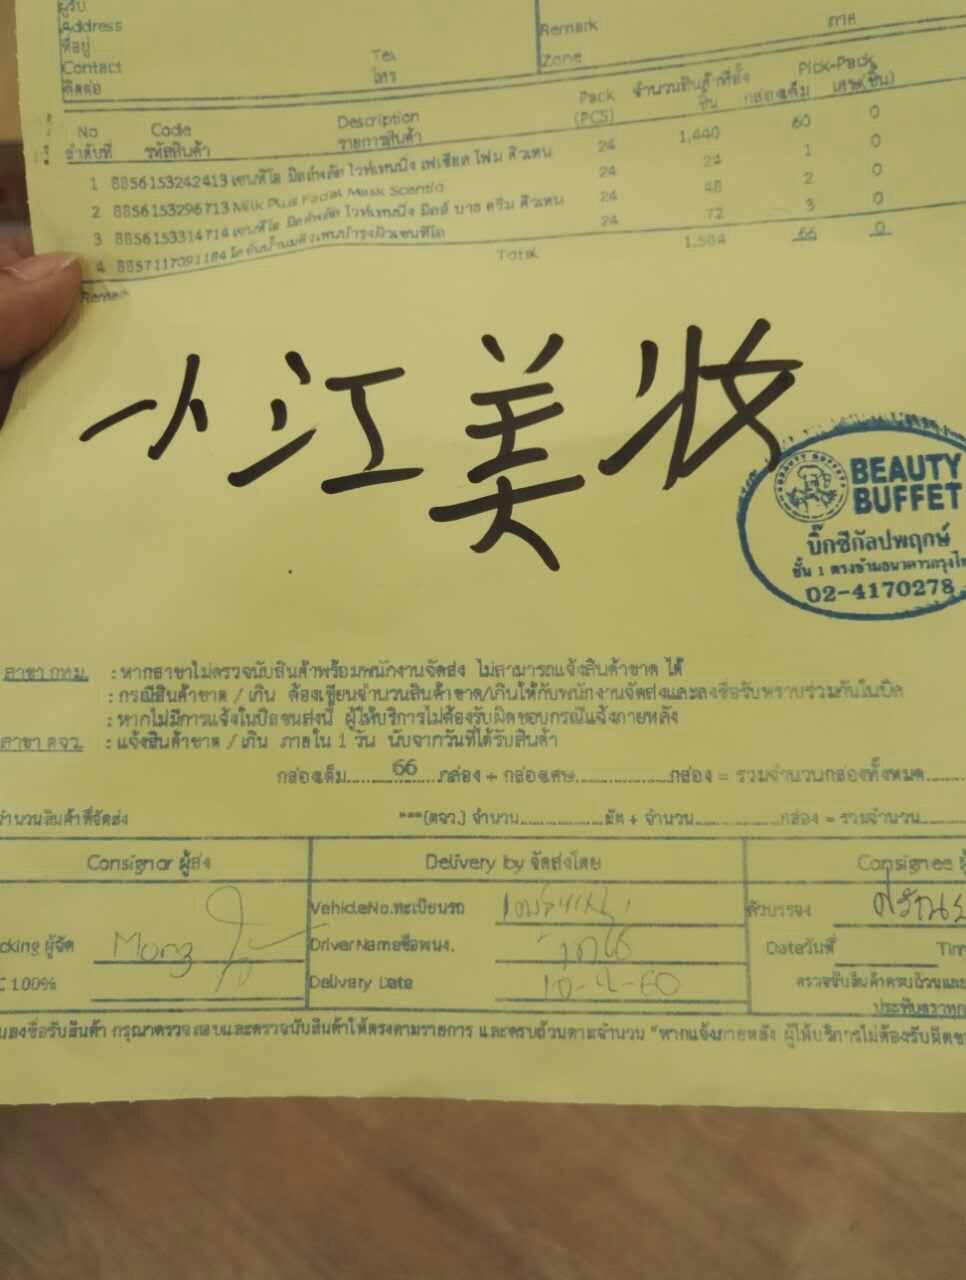 ผู้รับ
Address
ที่อยู่
Contact Tel
ติดต่อ โทร
Remark
Zone
ภาค
No Code Description Pack จำนวนสินค้าที่สั่ง Pick-Pack
ลำดับที่ รหัสสินค้า รายการสินค้า (PCS) ชิ้น กล่องเต็ม เศษ(ชิ้น)
1 8856153242413 เซนทิโอ มิลค์พลัส ไวท์เทนนิ่ง เฟเชียล โฟม คิวเทน 24 1,440 60 0
2 8856153296713 Milk Plus Facial Mask Scentio 24 24 1 0
3 8856153314714 เซนทิโอ มิลค์พลัส ไวท์เทนนิ่ง มิลล์ บาธ ครีม คิวเทน 24 48 2 0
4 8857117091184 24 72 3 0
Total 1,584 66 0
Remark
小江美妆
BEAUTY
BUFFET
บิ๊กซีกัลปพฤกษ์
ชั้น 1 ตรงข้ามธนาคารกรุงไท
02-4170278
สาขา กทม. : หากสาขาไม่ตรวจนับสินค้าพร้อมพนักงานจัดส่ง ไม่สามารถแจ้งสินค้าขาด ได้
: กรณีสินค้าขาด / เกิน ต้องเขียนจำนวนสินค้าขาด/เกินให้กับพนักงานจัดส่งและลงชื่อรับทราบร่วมกันในบิล
: หากไม่มีการแจ้งในบิลขนส่งนี้ ผู้ให้บริการไม่ต้องรับผิดชอบกรณีแจ้งภายหลัง
สาขา ตจว. : แจ้งสินค้าขาด / เกิน ภายใน 1 วัน นับจากวันที่ได้รับสินค้า
กล่องเต็ม......66......กล่อง + กล่องเศษ...............กล่อง = รวมจำนวนกล่องทั้งหมด........
จำนวนสินค้าที่จัดส่ง ***(ตจว.) จำนวน...............มัด + จำนวน...............กล่อง = รวมจำนวน........
Consignor ผู้ส่ง Delivery by จัดส่งโดย Consignee
VehicleNo.ทะเบียนรถ ตัวบรรจง
cking ผู้จัด Mong DriverNameชื่อพนง. Dateวันที่ Tim
100% Delivery Date 10-4-60 ตรวจรับสินค้าครบถ้วนและ
ประทับตราทุก
นลงชื่อรับสินค้า กรุณาตรวจสอบและตรวจนับสินค้าให้ตรงตามรายการ และครบถ้วนตามจำนวน "หากแจ้งภายหลัง ผู้ให้บริการไม่ต้องรับผิดช